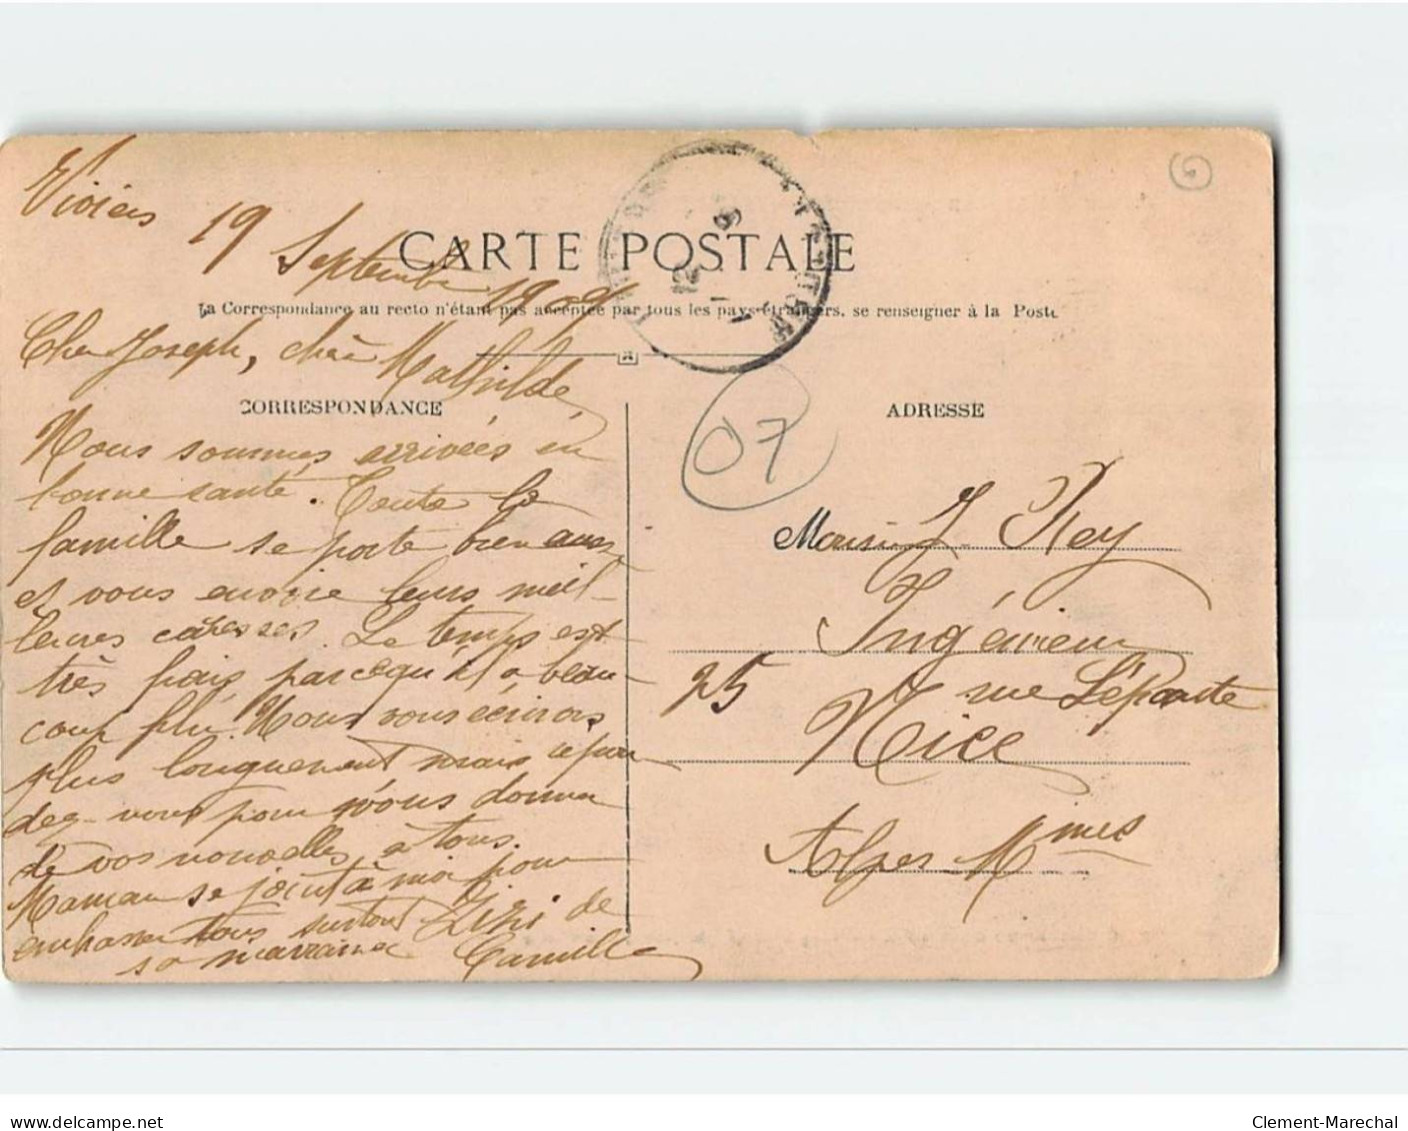 Viviers 19 Septembre 1909
CARTE POSTALE
La Correspondance au recto n'étant pas acceptée par tous les pays étrangers, se renseigner à la Poste
Cher Joseph, chère Mathilde,
CORRESPONDANCE
Nous sommes arrivées en
bonne santé. Toute la
famille se porte bien aussi
et vous envoie leurs meil-
leures caresses. Le temps est
très frais parcequ'il a beau-
coup plu. Nous vous écrirons
plus longuement mais
dez-vous pour nous donner
de vos nouvelles à tous.
Maman se joint à moi pour
embrasser tous surtout Zizi de
sa marraine Camille
ADRESSE
07
Monsieur J. Rey
Ingénieur
25 rue Lépante
Nice
Alpes Mmes
www.delcampe.net
Clement-Marechal